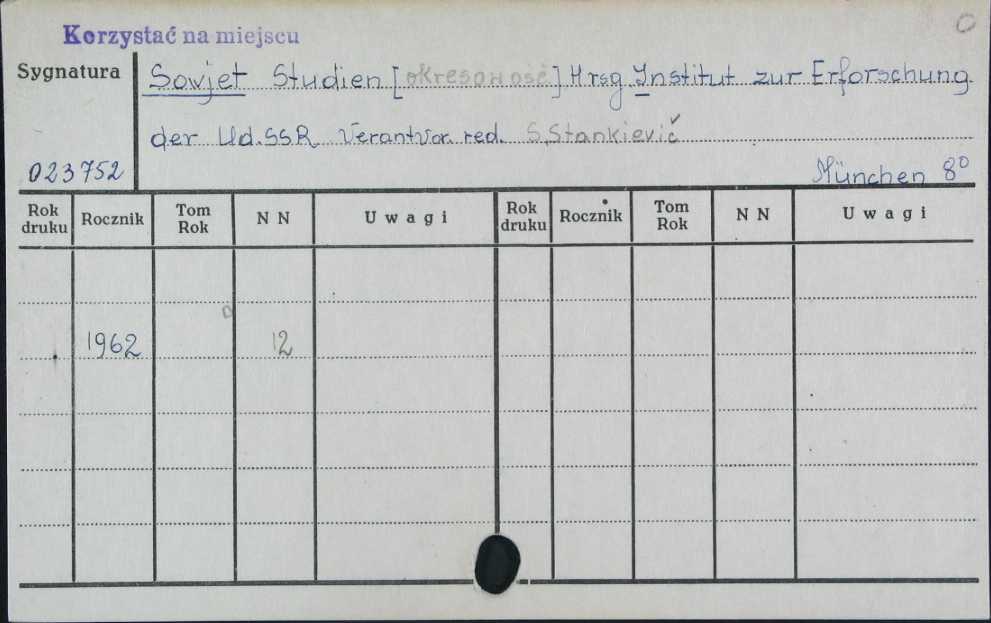 O
Korzystać na miejscu
Sygnatura
Sowjet Studien [okresowość] Hrsg. Institut zur Erforschung
der Ud.SSR Verantwor. red. S.Stankievič
023752
München 8°
Rok druku Rocznik Tom Rok N N Uwagi Rok druku Rocznik Tom Rok N N Uwagi
1962 12